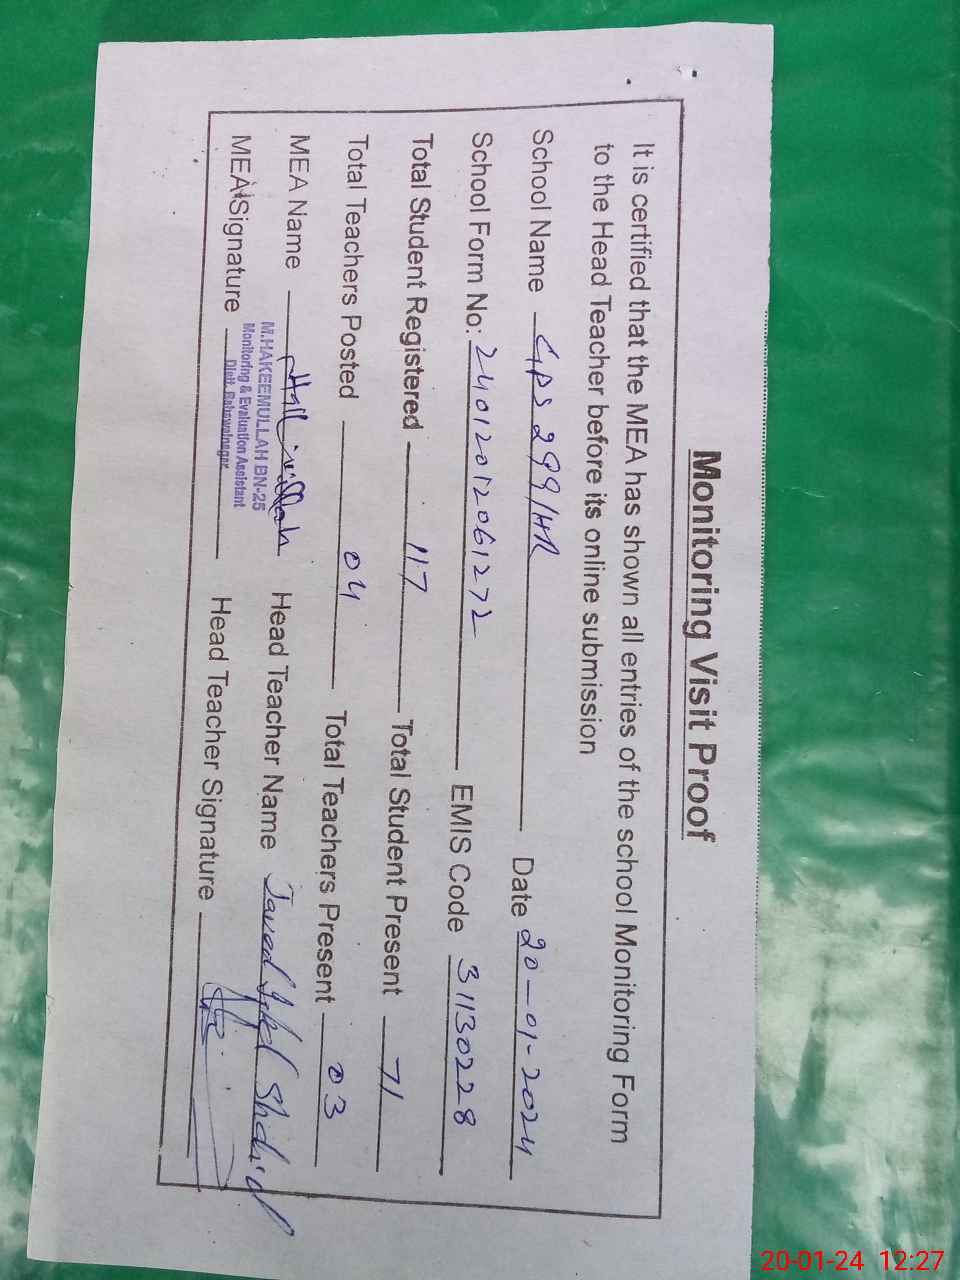 Monitoring Visit Proof
It is certified that the MEA has shown all entries of the school Monitoring Form
to the Head Teacher before its online submission
School Name GPS 299/HR Date 20-01-2024
School Form No: 24012012061272 EMIS Code 31130228
Total Student Registered 117 Total Student Present 71
Total Teachers Posted 04 Total Teachers Present 03
MEA Name Head Teacher Name Javed Iqbal Shahid
M.HAKEEMULLAH BN-25
Monitoring & Evaluation Assistant
Distt. Bahawalnagar
MEA Signature Head Teacher Signature
20-01-24 12:27